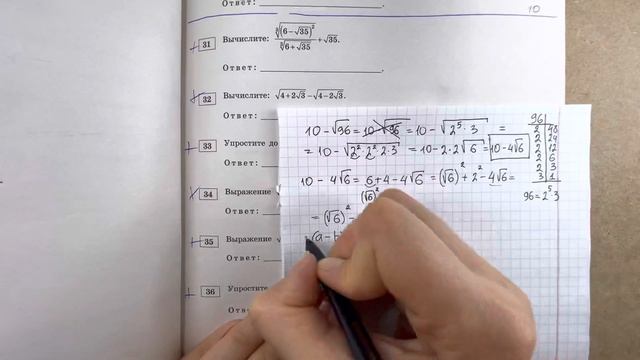 Ответ:
10
31 Вычислите: \frac{\sqrt[3]{(6-\sqrt{35})^2}}{\sqrt[3]{6+\sqrt{35}}}+\sqrt{35}.
Ответ:
32 Вычислите: √4+2√3 − √4−2√3.
33 Упростите
34 Выражение
Ответ:
35 Выражение
Ответ:
36 Упростите
Ответ:
10 − √96 = 10 − √96 = 10 − √2⁵·3 =
= 10 − √2²·2²·2·3 = 10 − 2·2√6 = 10 − 4√6
10 − 4√6 = 6 + 4 − 4√6 = (√6)² + 2² − 4√6 =
(√6)²
= (√6)² −
(a −
96
2 48
2 24
2 12
2 6
2 3
3 1
96 = 2⁵·3